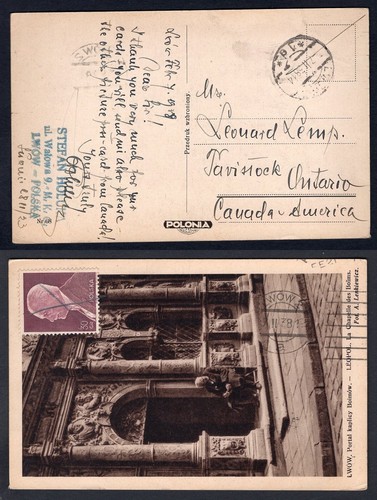 Lwów Febr 7. 1929
Dear Sir!
I thank you very much for your
cards. You will send me also please
the other picture post-card from Canada!
Yours truly
STEFAN
ul. Wałowa 9.
LWÓW - POLSKA
Przedruk wzbroniony.
POLONIA
Mr.
Leonard Lemp.
Tavistock
Ontario
Canada-America
LWÓW
POLSKA
30
LWÓW, Portal kaplicy Boimów. - LÉOPOL, La Chapelle des Boims.
Fot. A. Lenkiewicz.